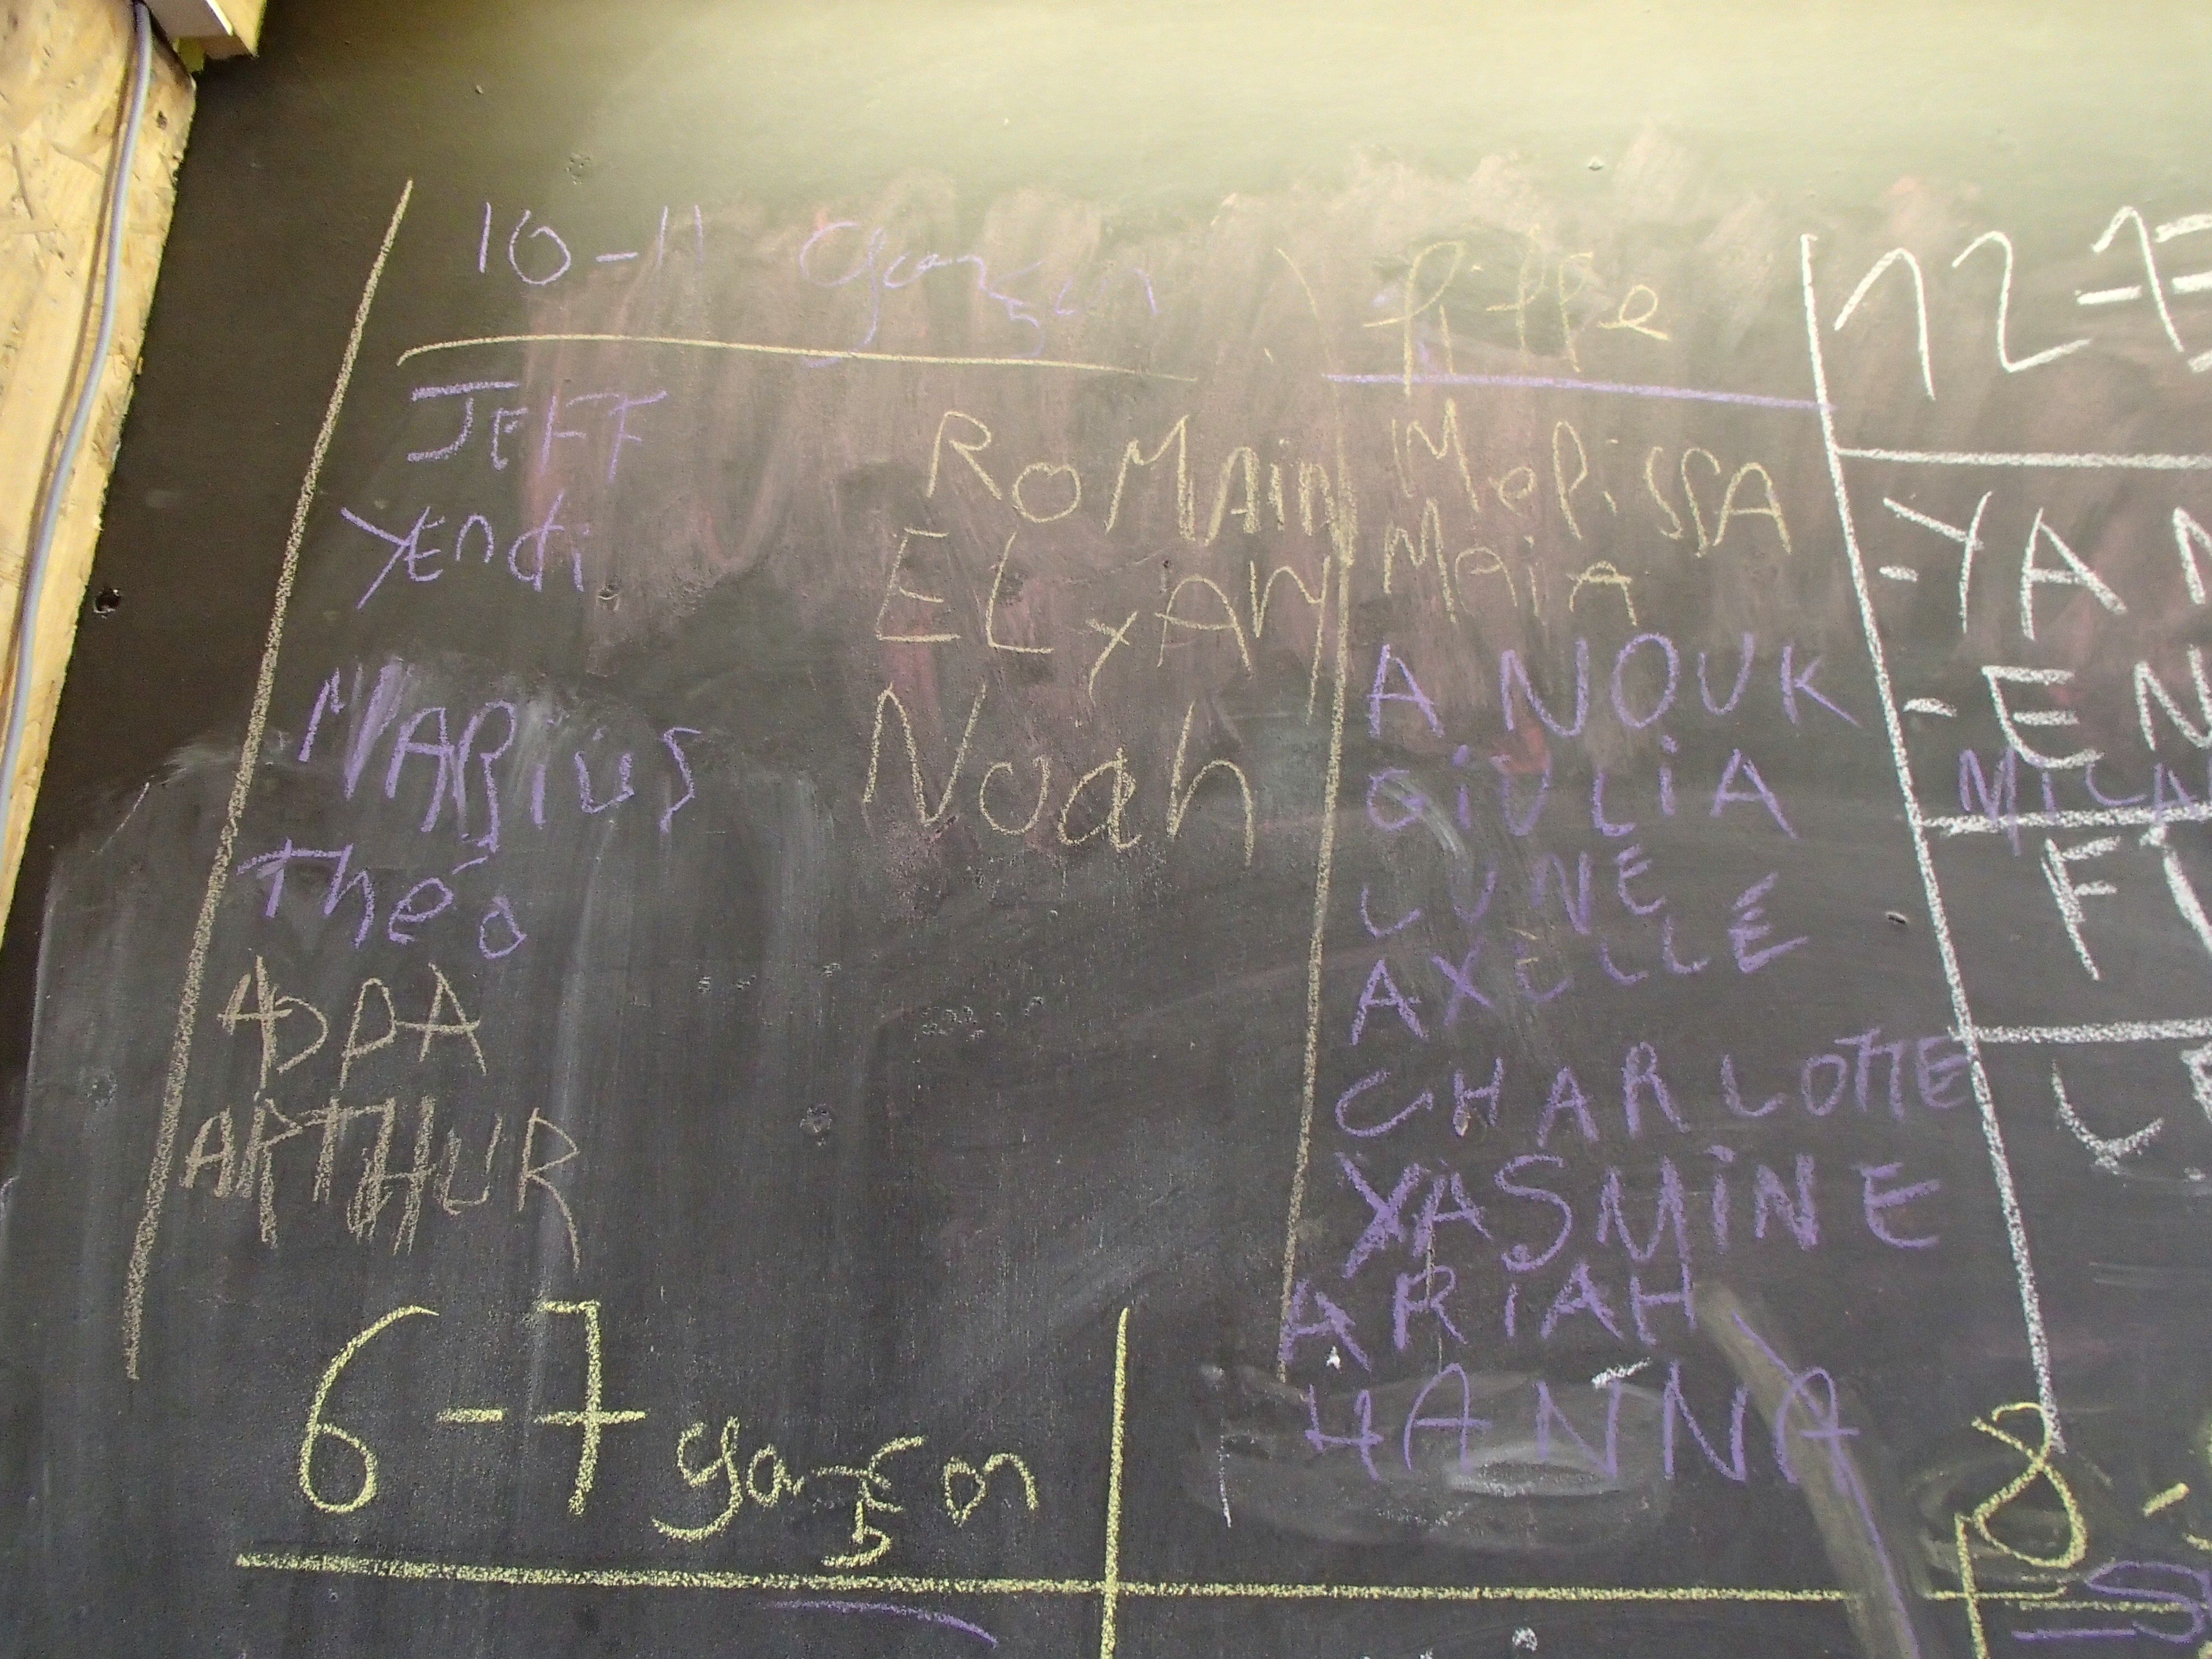 10-11 garçon
JEFF
YEndi
MARiUS
Théo
ADDA
ARTHUR
ROMAin
ELYAN
Noah
fiffe
MeliSSA
MAiA
ANOUK
GiULiA
LUNE
AXELLE
CHARLOTTE
YASMiNE
ARiAH
HANNA
12-13
-YAN
-EN
MICA
FI
LE
6-7 garçon
8-